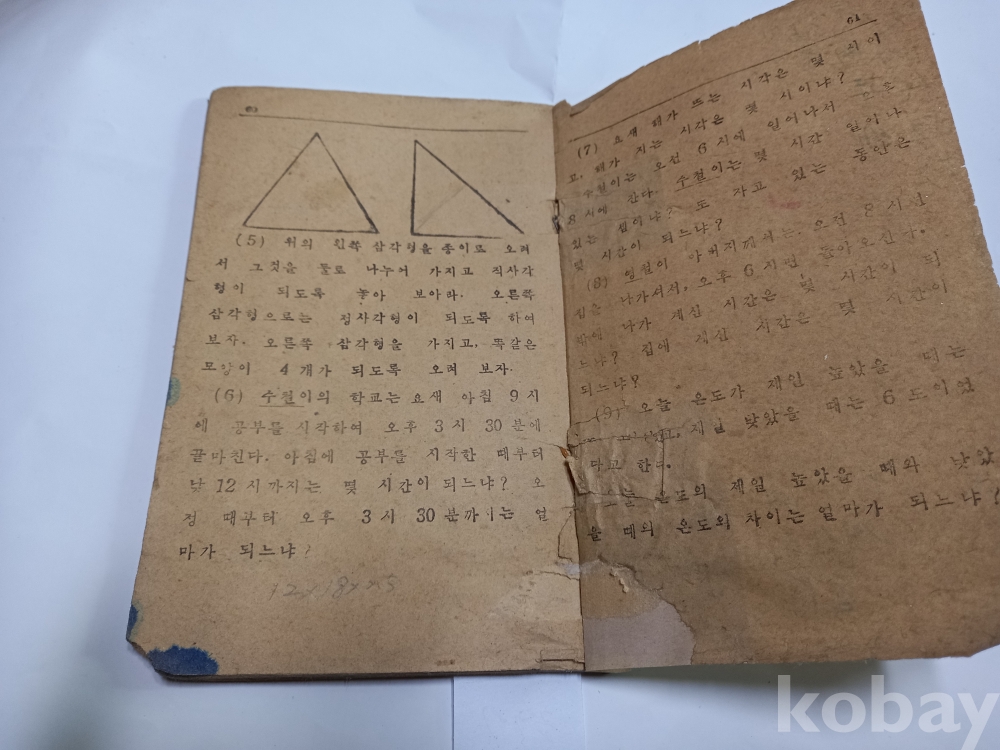 (5) 위의 왼쪽 삼각형을 종이로 오려
서 그것을 둘로 나누어 가지고 직사각
형이 되도록 놓아 보아라. 오른쪽
삼각형으로는 정사각형이 되도록 하여
보자. 오른쪽 삼각형을 가지고, 똑같은
모양이 4개가 되도록 오려 보자.
(6) 수철이의 학교는 요새 아침 9시
에 공부를 시작하여 오후 3시 30분에
끝마친다. 아침에 공부를 시작한 때부터
낮 12시까지는 몇 시간이 되느냐? 오
정 때부터 오후 3시 30분까지는 얼
마가 되느냐?
61
(7) 요새 해가 뜨는 시각은 몇 시이
고, 해가 지는 시각은 몇 시이냐?
수철이는, 오전 6시에 일어나서 오후
8시에 잔다. 수철이는 몇 시간 일어나
있는 셈이냐? 또 자고 있는 동안은
몇 시간이 되느냐?
(8) 영철이 아버지께서는, 오전 8시면
집을 나가셔서, 오후 6시면, 돌아오신다.
밖에 나가 계신 시간은 몇 시간이 되
느냐? 집에 계신 시간은 몇 시간이
되느냐?
(9) 오늘 온도가 제일 높았을 때는
제일 낮았을 때는 6도이었
다고 한다.
온도의 제일 높았을 때와 낮았
을 때의 온도의 차이는 얼마가 되느냐?
kobay